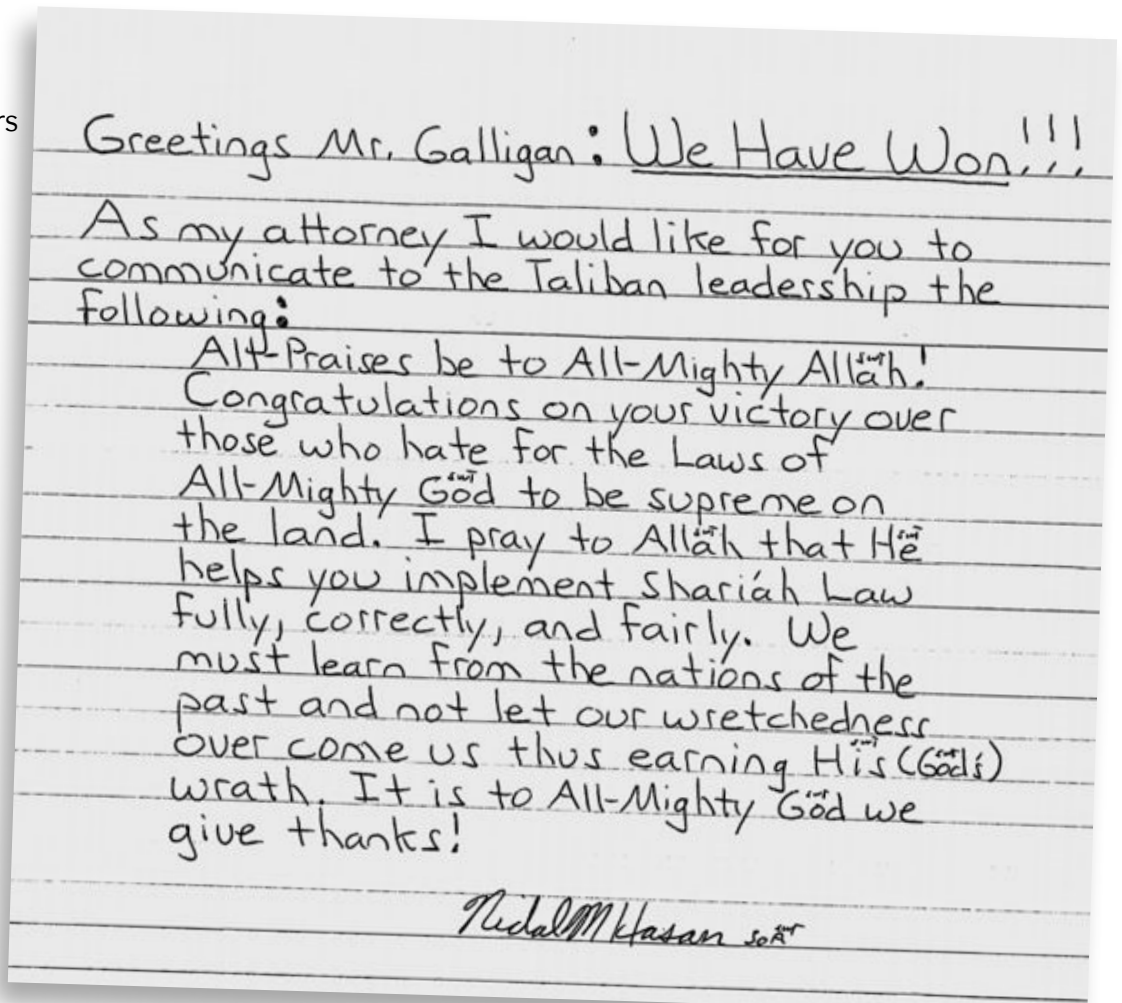 rs
Greetings Mr. Galligan: We Have Won!!!
As my attorney I would like for you to
communicate to the Taliban leadership the
following:
All-Praises be to All-Mighty Allah!
Congratulations on your victory over
those who hate for the Laws of
All-Mighty God to be supreme on
the land. I pray to Allah that He
helps you implement Shariáh Law
fully, correctly, and fairly. We
must learn from the nations of the
past and not let our wretchedness
over come us thus earning His (God's)
wrath. It is to All-Mighty God we
give thanks!
Nidal M Hasan SoA